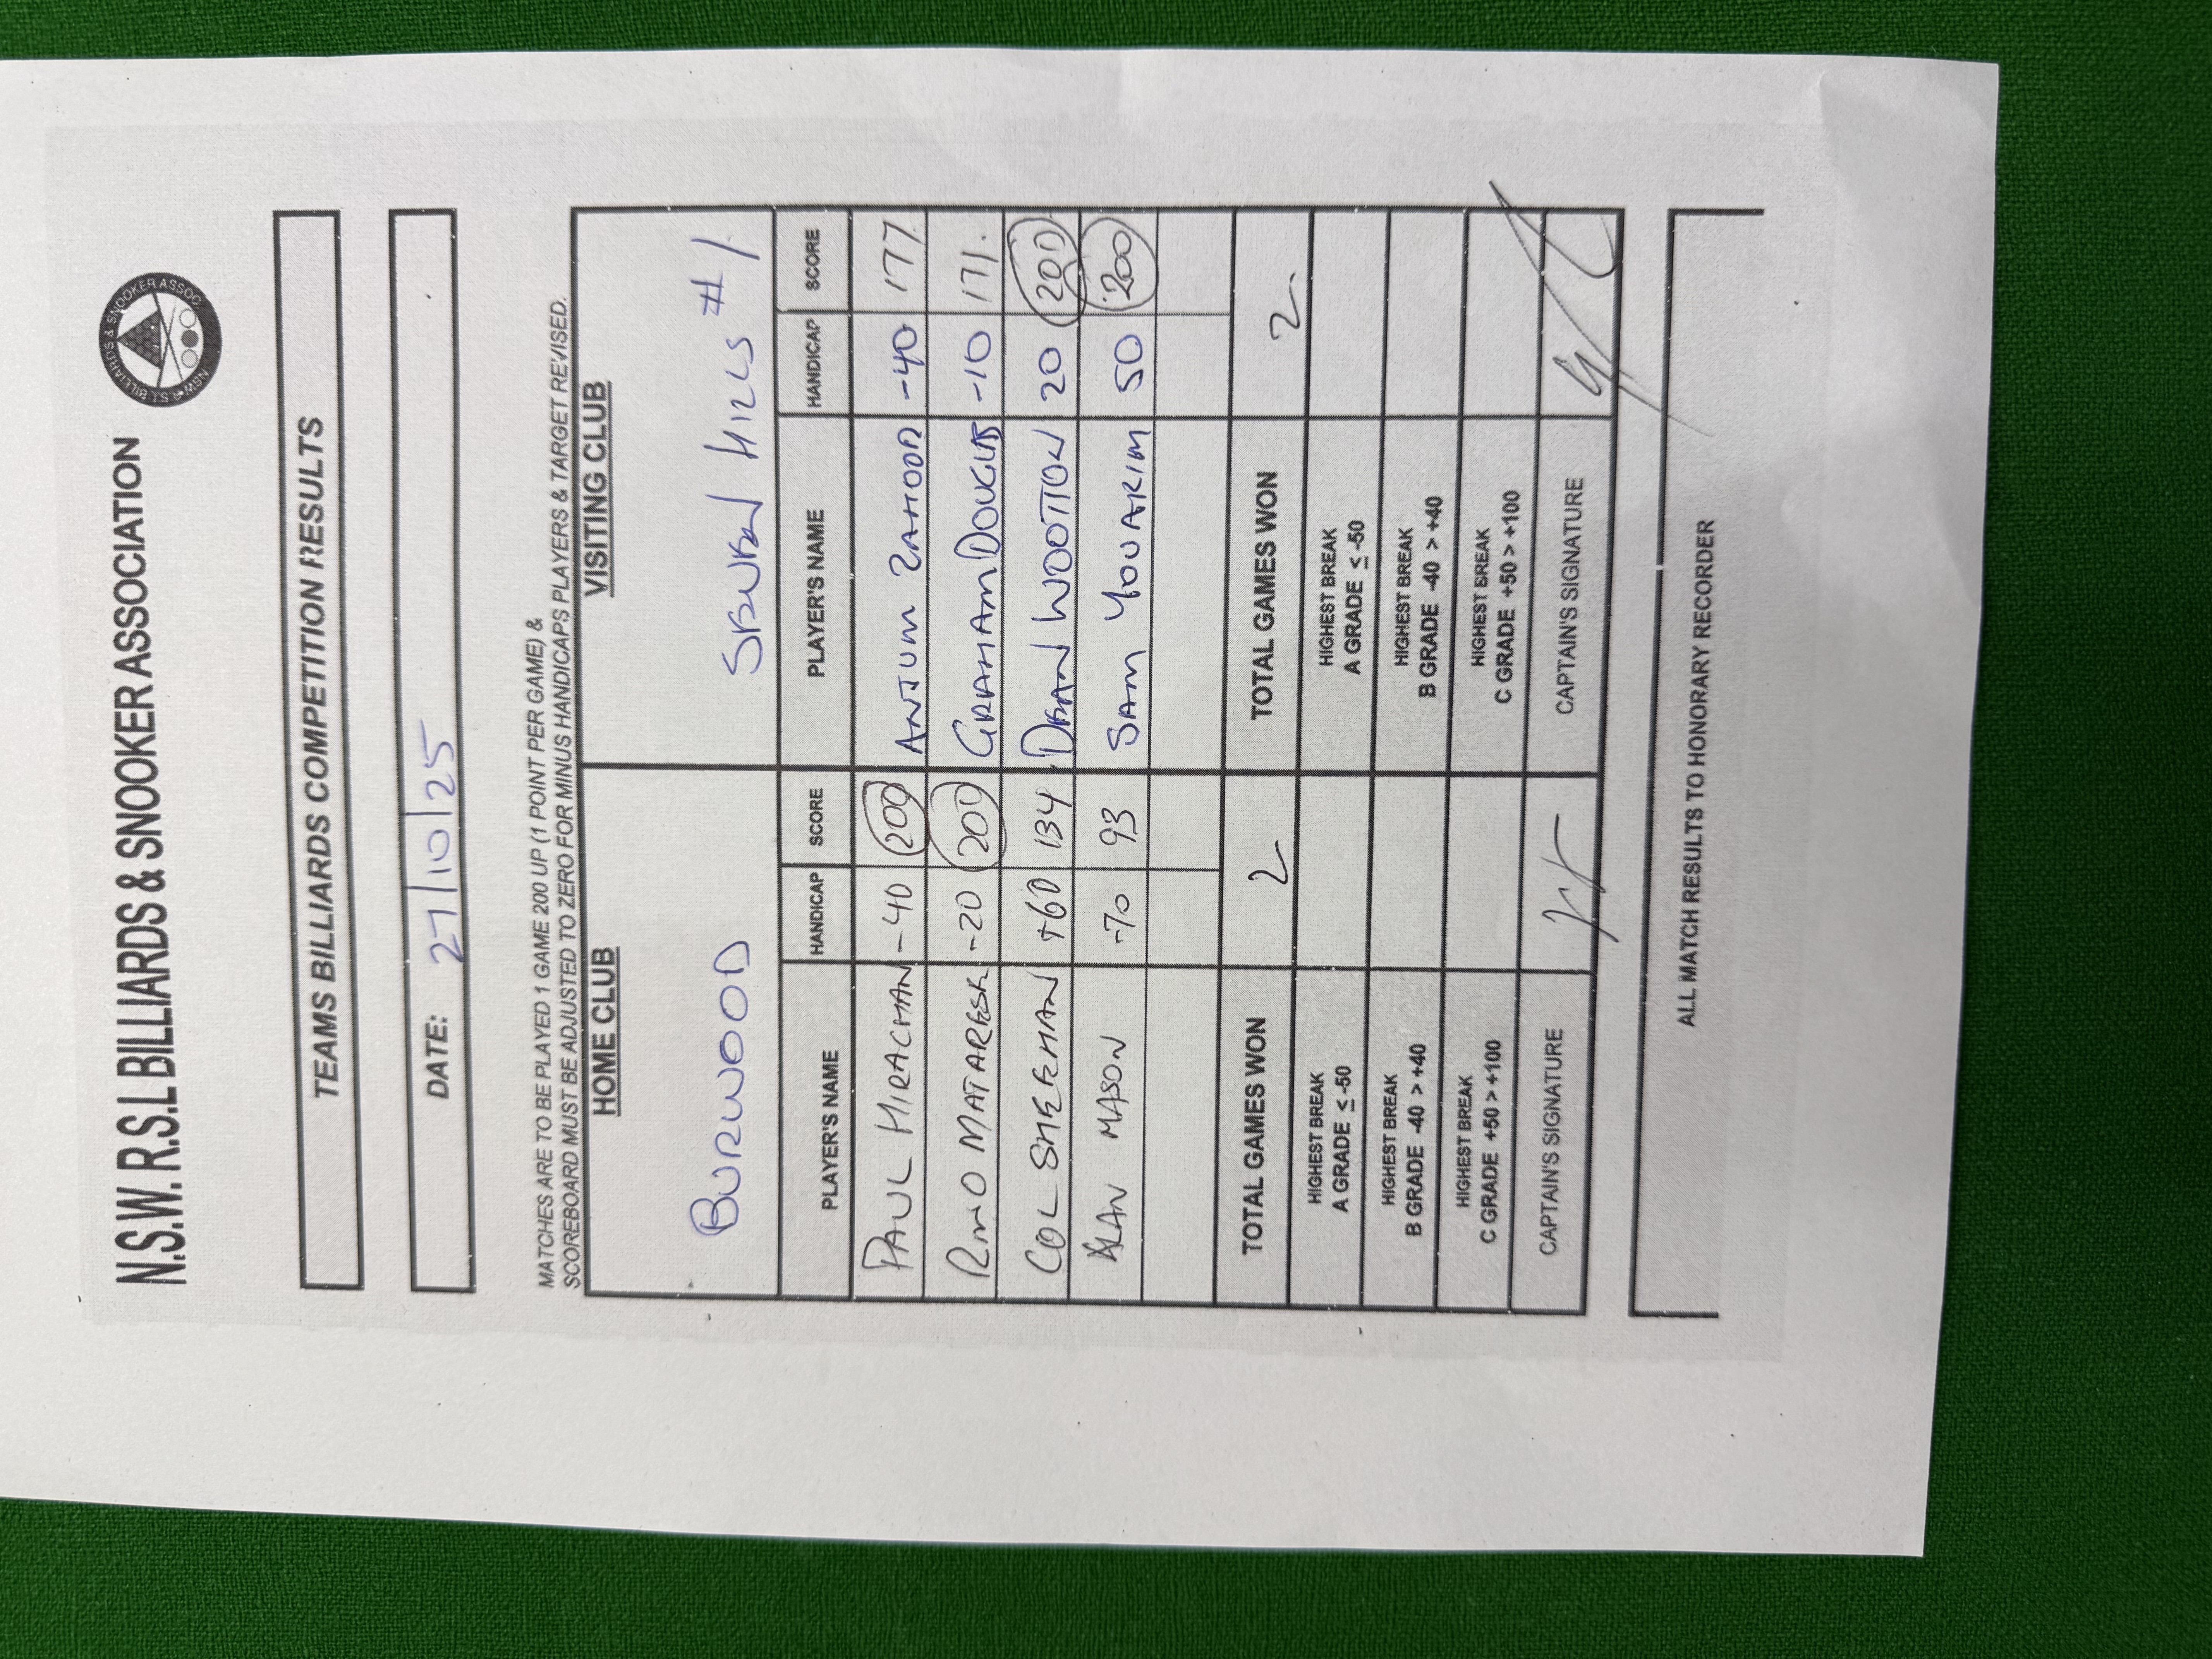 N.S.W. R.S.L BILLIARDS & SNOOKER ASSOCIATION
NSW R.S.L BILLIARDS & SNOOKER ASSOC
TEAMS BILLIARDS COMPETITION RESULTS
DATE: 27/10/25
MATCHES ARE TO BE PLAYED 1 GAME 200 UP (1 POINT PER GAME) &
SCOREBOARD MUST BE ADJUSTED TO ZERO FOR MINUS HANDICAPS PLAYERS & TARGET REVISED.
HOME CLUB VISITING CLUB
BURWOOD SEVEN HILLS #1
PLAYER'S NAME HANDICAP SCORE PLAYER'S NAME HANDICAP SCORE
PAUL HIRACHAN -40 200 ANJUM ZAHOOR -40 177
RINO MATARESE -20 200 GRAHAM DOUGLAS -10 171.
COL SHEEHAN +60 134 DEAN WOOTTON 20 200
ALAN MASON -70 93 SAM YOUARIM 50 200
TOTAL GAMES WON 2 TOTAL GAMES WON 2
HIGHEST BREAK HIGHEST BREAK
A GRADE ≤ -50 A GRADE ≤ -50
HIGHEST BREAK HIGHEST BREAK
B GRADE -40 > +40 B GRADE -40 > +40
HIGHEST BREAK HIGHEST BREAK
C GRADE +50 > +100 C GRADE +50 > +100
CAPTAIN'S SIGNATURE CAPTAIN'S SIGNATURE
ALL MATCH RESULTS TO HONORARY RECORDER